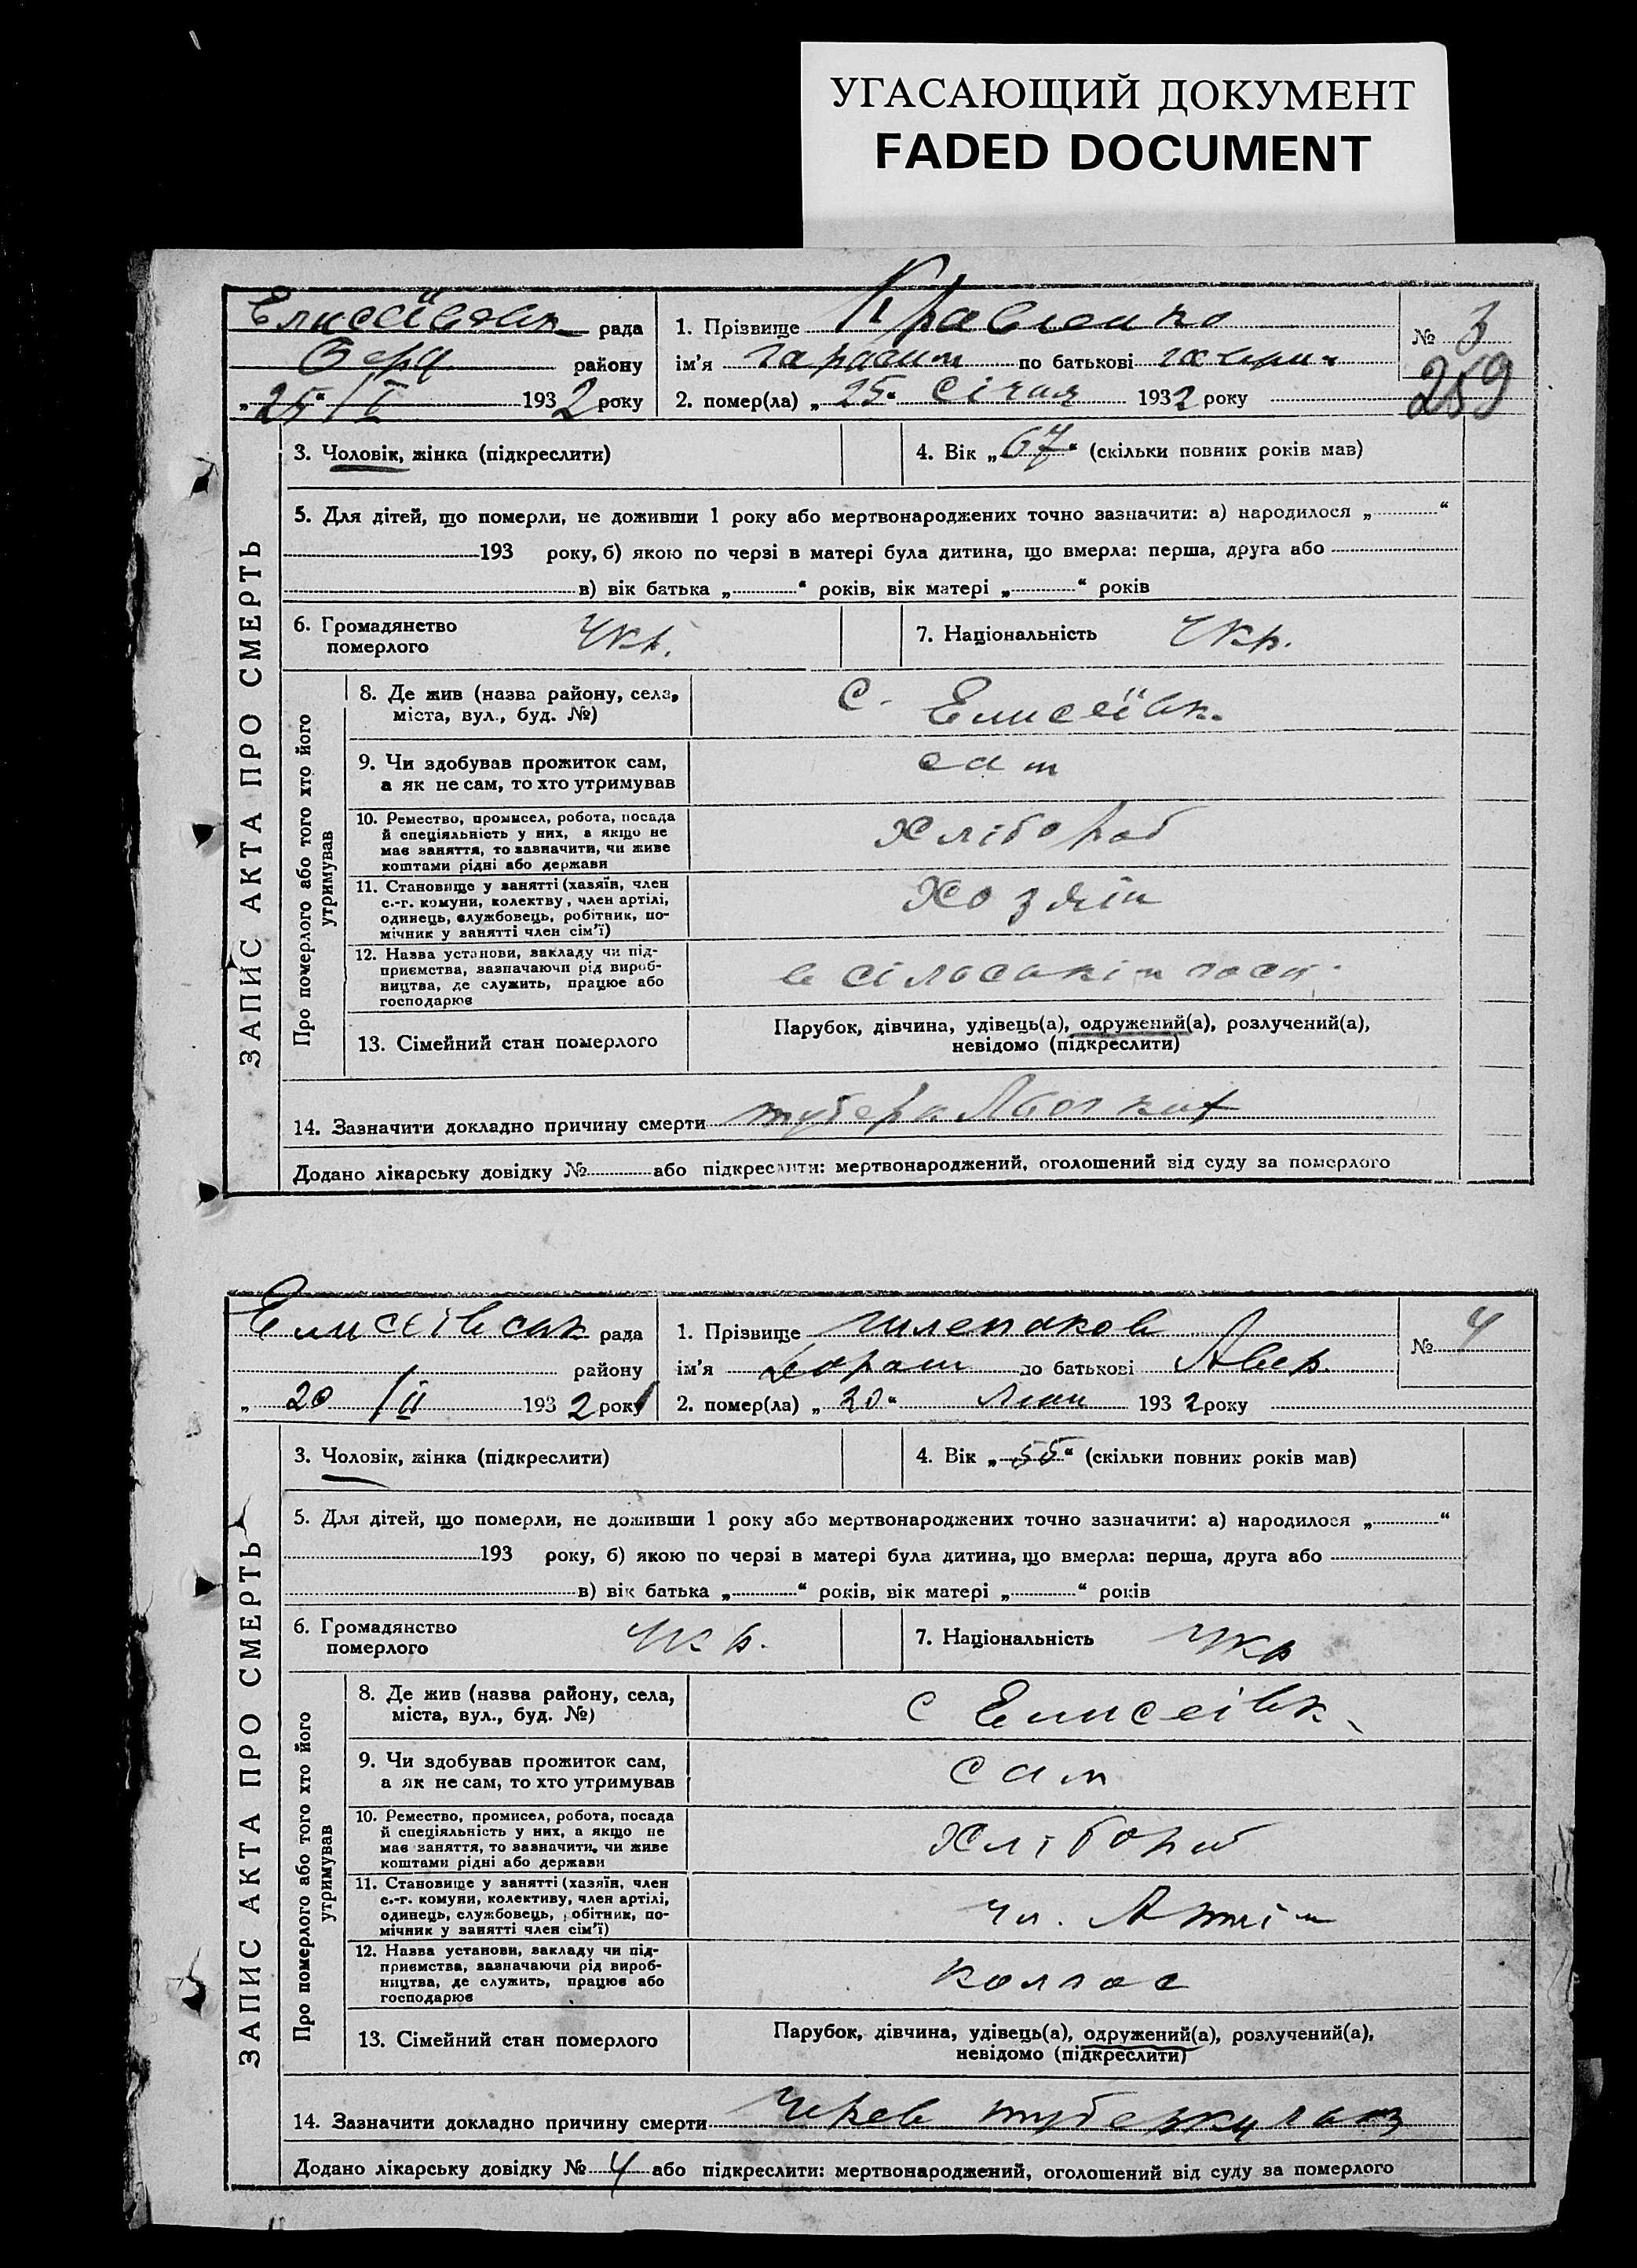 УГАСАЮЩИЙ ДОКУМЕНТ
FADED DOCUMENT
рада
району
„ 25 “ / I 1932 року
1. Прізвище Кравченко
ім'я по батькові
2. помер(ла) „ 25 “ Січня 1932 року
№ 3
259
ЗАПИС АКТА ПРО СМЕРТЬ
3. Чоловік, жінка (підкреслити)
4. Вік „ 67 “ (скільки повних років мав)
5. Для дітей, що померли, не доживши 1 року або мертвонароджених точно зазначити: а) народилося „ “
193 року, б) якою по черзі в матері була дитина, що вмерла: перша, друга або
в) вік батька „ “ років, вік матері „ “ років
6. Громадянство
померлого
Укр.
7. Національність Укр.
Про померлого або того хто його
утримував
8. Де жив (назва району, села,
міста, вул., буд. №)
с. Елисеївк.
9. Чи здобував прожиток сам,
а як не сам, то хто утримував
сам
10. Ремество, промисел, робота, посада
й спеціяльність у них, а якщо не
має заняття, то зазначити, чи живе
коштами рідні або держави
Хлібороб
11. Становище у занятті (хазяїн, член
с.-г. комуни, колектву, член артілі,
одинець, службовець, робітник, по-
мічник у занятті член сім'ї)
Хозяїн
12. Назва установи, закладу чи під-
приємства, зазначаючи рід вироб-
ництва, де служить, працює або
господарює
в
13. Сімейний стан померлого
Парубок, дівчина, удівець(а), одружений(а), розлучений(а),
невідомо (підкреслити)
14. Зазначити докладно причину смерти
Додано лікарську довідку № або підкреслити: мертвонароджений, оголошений від суду за померлого
рада
району
„ 20 / II 1932 року
1. Прізвище
ім'я по батькові Авер.
2. помер(ла) „ 20 “ 1932 року
№ 4
ЗАПИС АКТА ПРО СМЕРТЬ
3. Чоловік, жінка (підкреслити)
4. Вік „ 55 “ (скільки повних років мав)
5. Для дітей, що померли, не доживши 1 року або мертвонароджених точно зазначити: а) народилося „ “
193 року, б) якою по черзі в матері була дитина, що вмерла: перша, друга або
в) вік батька „ “ років, вік матері „ “ років
6. Громадянство
померлого
Укр.
7. Національність Укр
Про померлого або того хто його
утримував
8. Де жив (назва району, села,
міста, вул., буд. №)
с Елисеівк.
9. Чи здобував прожиток сам,
а як не сам, то хто утримував
сам
10. Ремество, промисел, робота, посада
й спеціяльність у них, а якщо не
має заняття, то зазначити, чи живе
коштами рідні або держави
Хлібороб
11. Становище у занятті (хазяїн, член
с.-г. комуни, колективу, член артілі,
одинець, службовець, робітник, по-
мічник у занятті член сім'ї)
чл.
12. Назва установи, закладу чи під-
приємства, зазначаючи рід вироб-
ництва, де служить, працює або
господарює
колгос
13. Сімейний стан померлого
Парубок, дівчина, удівець(а), одружений(а), розлучений(а),
невідомо (підкреслити)
14. Зазначити докладно причину смерти туберкульоз
Додано лікарську довідку № 4 або підкреслити: мертвонароджений, оголошений від суду за померлого